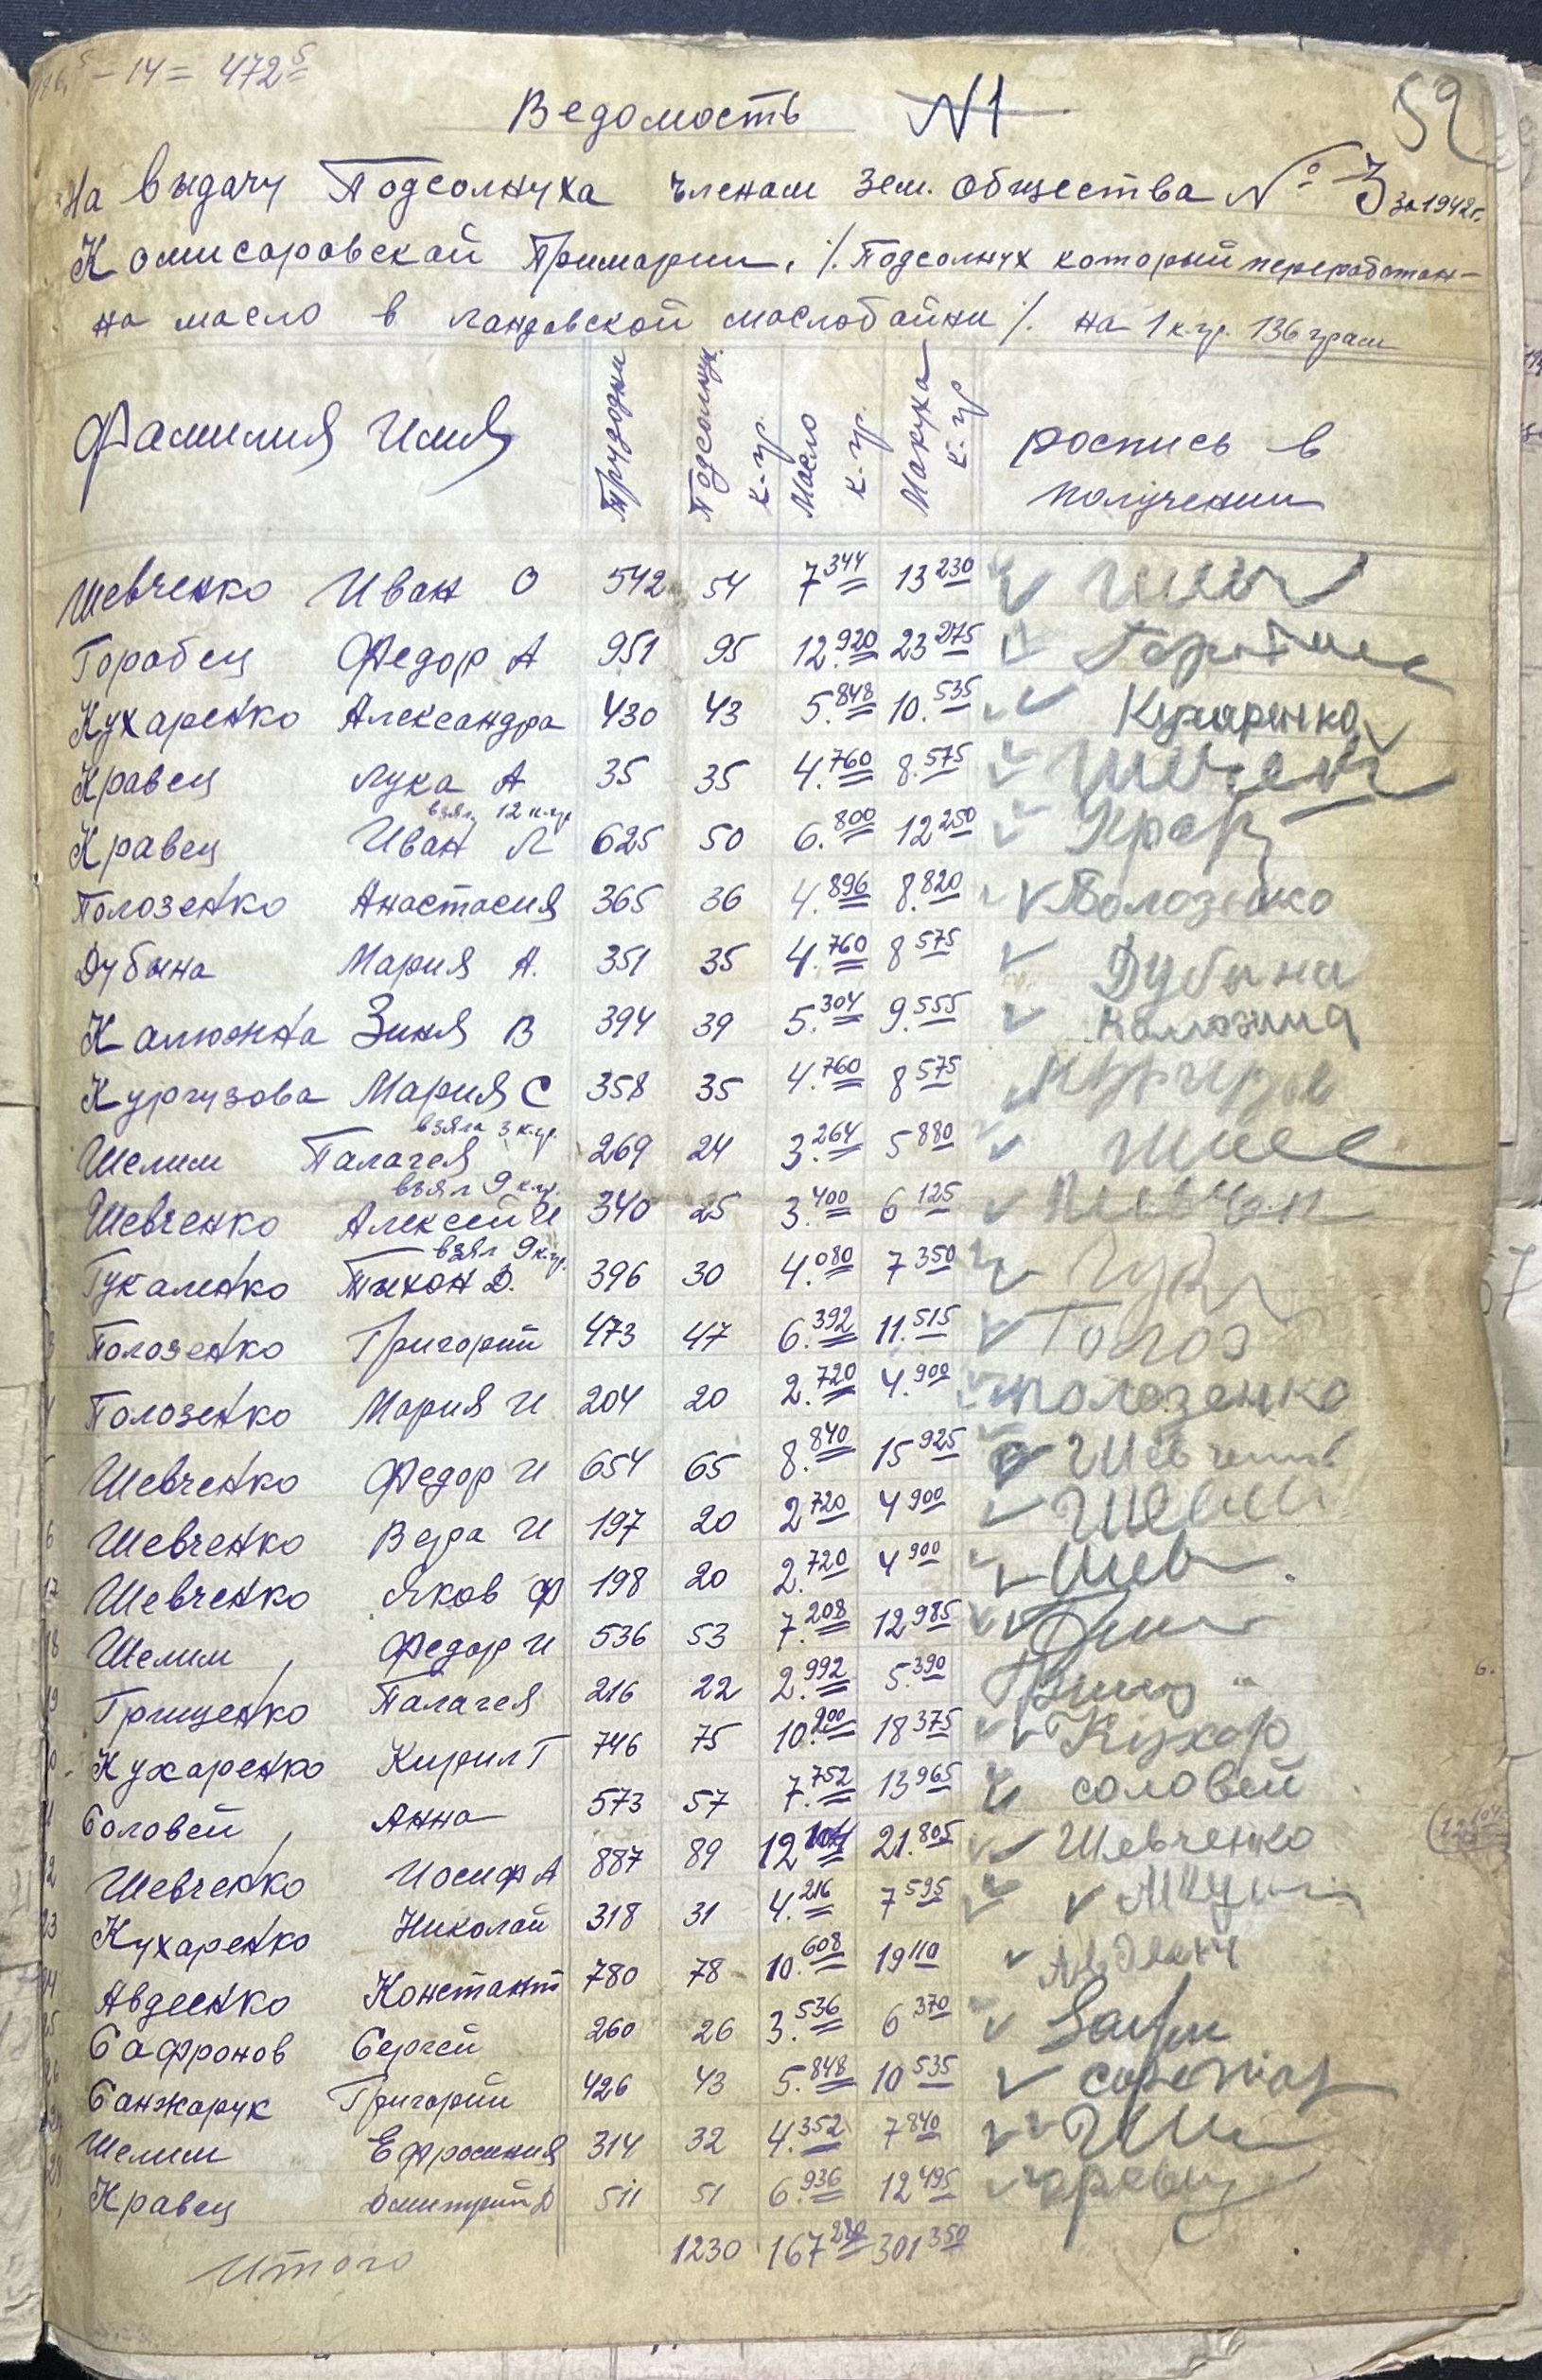 - 14 = 472 5
52
Ведомость N1
На выдачу Подсолнуха членам зем. общества № 3 за 1942г.
Комисаровской Примарии. ·/. Подсолнух который переработан-
на масло в маслобойни ·/. на 1 к.гр. 136 грам
Фамилия Имя Трудодни Подсолнух к-гр. Масло к.гр. Макуха к-гр роспись в
получении
Шевченко Иван О 542 54 7 344 13 230 Шев
Горобец Федор А 951 95 12.920 23 275
Кухаренко Александра 430 43 5.848 10.535 Кухаренко
Кравец Лука А 35 35 4.760 8.575
взял 12 к.гр
Кравец Иван Л 625 50 6.800 12 250
Полозенко Анастасия 365 36 4.896 8.820 Полозенко
Дубына Мария А. 351 35 4.760 8 575 Дубына
Калюжна Зиня В 394 39 5.304 9.555
Кургузова Мария С 358 35 4.760 8 575
взяла 3 к.гр.
Шелим Палагея 269 24 3.264 5 880
взял 9 к.гр.
Шевченко Алексей И 340 25 3.400 6 125
взял 9 к.гр.
Гукаленко Тыхон Д. 396 30 4.080 7 350
Полозенко Григорий 473 47 6.392 11.515 Полоз
Полозенко Мария И 204 20 2.720 4.900 полозенко
Шевченко Федор И 654 65 8.840 15 925
6 Шевченко Вера И 197 20 2 720 4 900
17 Шевченко Яков Ф 198 20 2.720 4 900 Шев
18 Шелим , Федор И 536 53 7.208 12 985
19 Грищенко Палагея 216 22 2.992 5.390
0 Кухаренко Кирил Г 746 75 10.200 18 375 Кухар
1 Соловей , Анна 573 57 7.752 13 965 соловей
2 Шевченко Иосиф А 887 89 12 104 21.805 Шевченко
23 Кухаренко Николай 318 31 4.216 7 595
24 Авдеенко Констант 780 78 10.608 19 110
25 Сафронов Сергей 260 26 3.536 6 370
26 Санжарук Григорий 426 43 5.848 10 535
Шелим Ефросиния 314 32 4.352 7 840
28 Кравец Дмитрий Д 511 51 6.936 12 495
Итого 1230 167 280 301 350